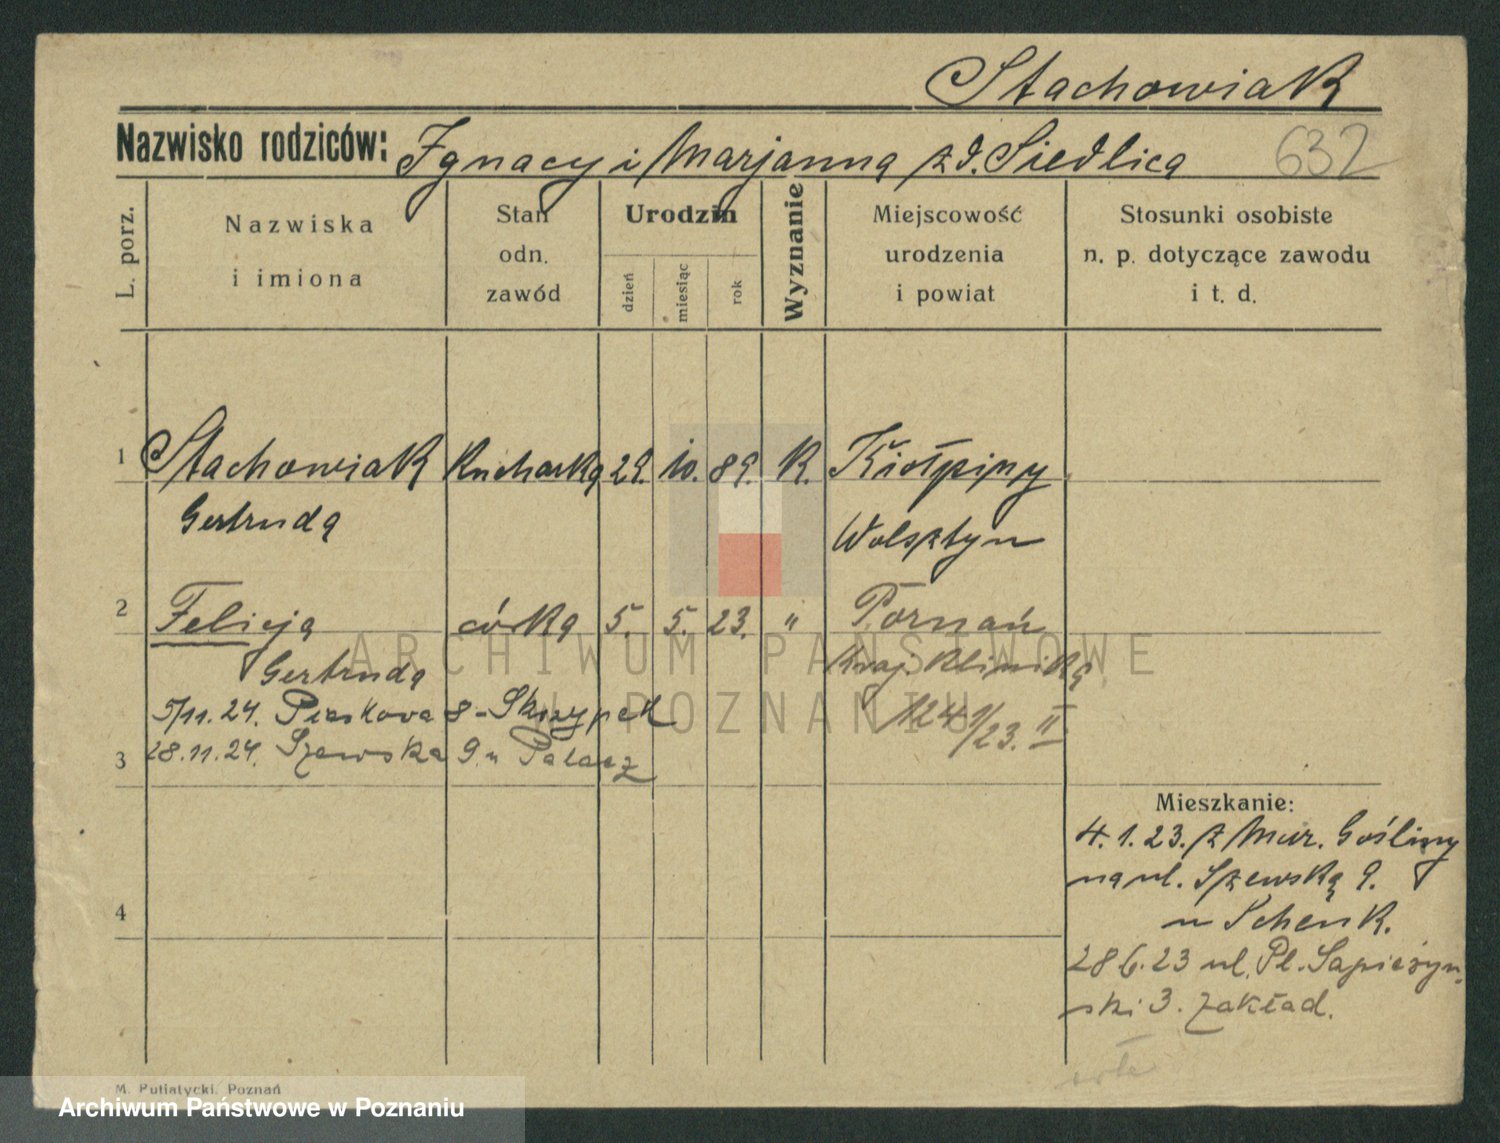 Stachowiak
Nazwisko rodziców: Ignacy i Marjanna zd. Siedlica
632
L. porz.
Nazwiska
i imiona
Stan
odn.
zawód
Urodzin
dzień
miesiąc
rok
Wyznanie
Miejscowość
urodzenia
i powiat
Stosunki osobiste
n. p. dotyczące zawodu
i t. d.
1 Stachowiak Kucharka 29. 10. 89. K. Kiełpiny
Gertruda Wolsztyn
2 Felicja córka 5. 5. 23. " Poznań
Gertruda Kraj. Klinika
5/11.24. Piaskowa 8 - Skrzypek 1241/23. II
28.11.24. Szewska 9 u Palacz
3
Mieszkanie:
4.1.23. z Mur. Gośliny
na ul. Szewską 9.
u Schenk.
28 6.23 ul. Pl. Sapieżyń-
ski 3. zakład.
4
M. Putiatycki, Poznań
ARCHIWUM PAŃSTWOWE
W POZNANIU
Archiwum Państwowe w Poznaniu